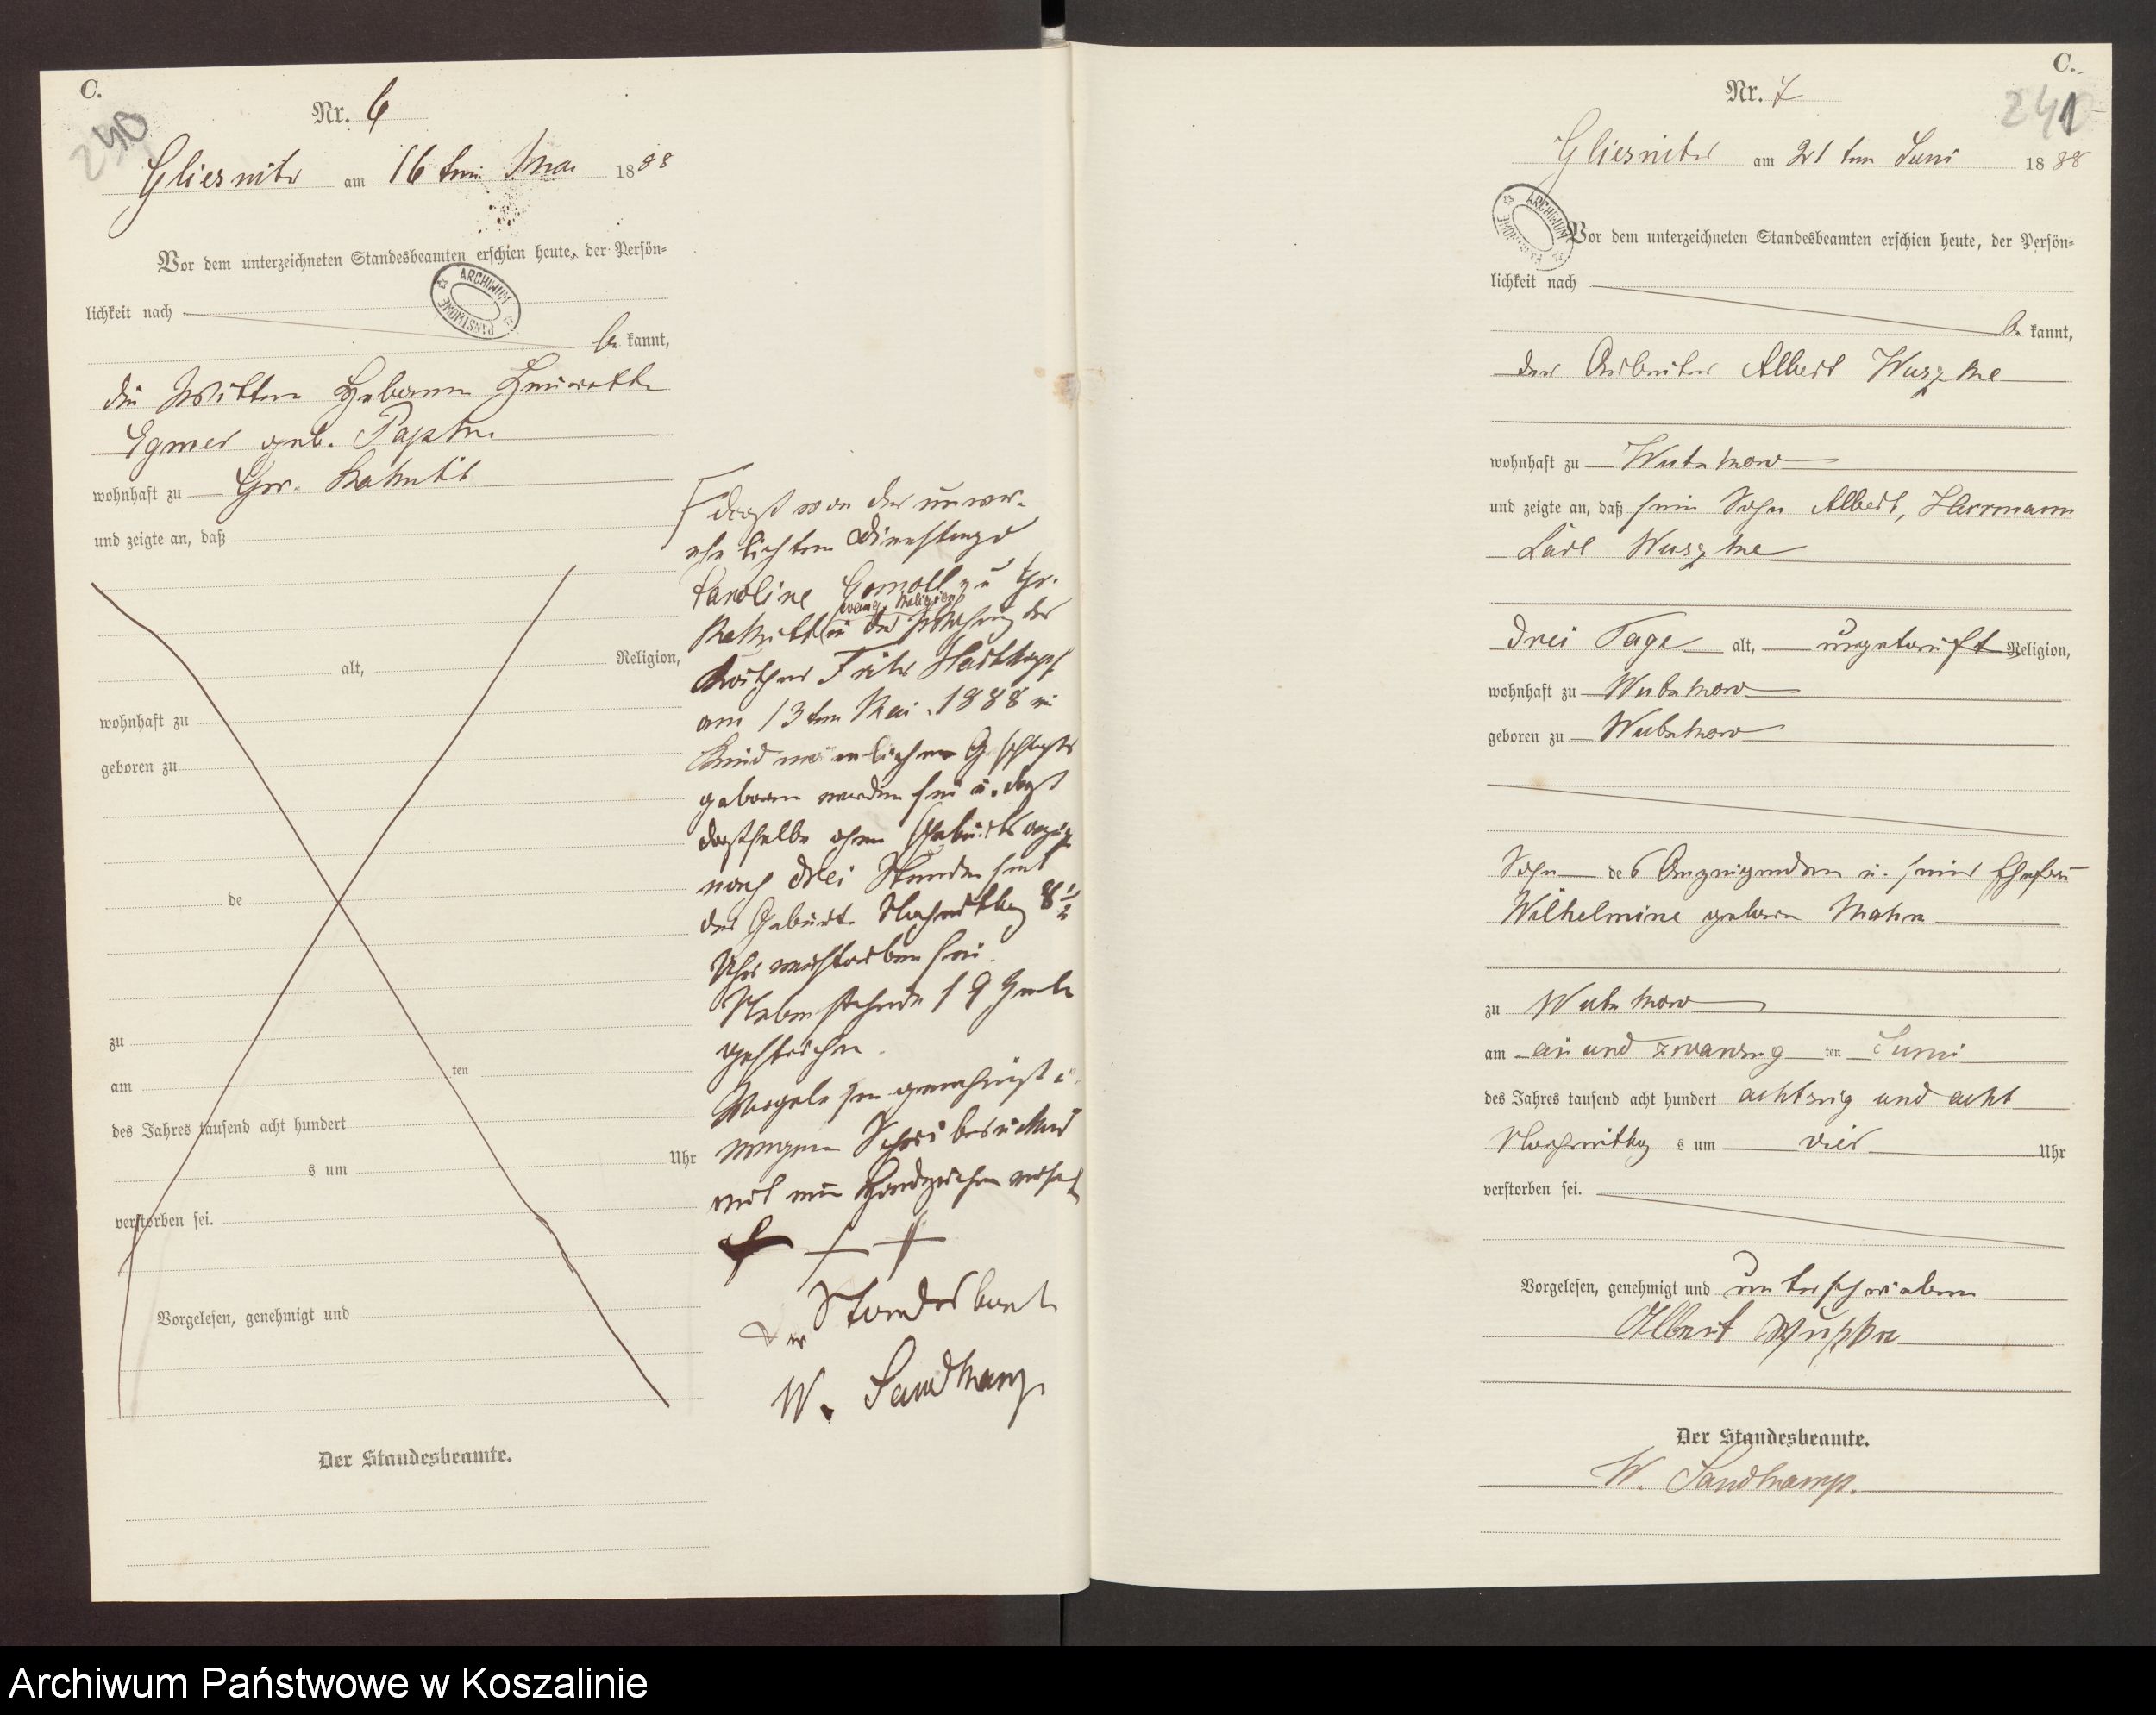 C.
240
Nr. 6
Gliesnitz am 16ten Mai 1888
Vor dem unterzeichneten Standesbeamten erschien heute, der Persön-
lichkeit nach
ARCHIWUM PAŃSTWOWE
be kannt,
die Wittwe Hebamme Henriette
geb.
wohnhaft zu Gr.
und zeigte an, daß
alt, Religion,
wohnhaft zu
geboren zu
de
zu
am ten
des Jahres tausend acht hundert
s um Uhr
verstorben sei.
Vorgelesen, genehmigt und
Der Standesbeamte.
daß von der unver-
ehelichten Dienstmagd
Karoline Gomoll zu Gr.
evang. Religion
in der Wohnung des
Fritz
am 13ten Mai 1888 ein
Kind männlichen Geschlechts
geboren worden sei u. daß
dasselbe ohne
nach drei Stunden seit
der Geburt Nachmittag 8½
Uhr verstorben sei.
Nebenstehende 19
gestrichen.
Vorgelesen genehmigt u.
wegen
mit Handzeichen versehen
+ + +
Der Standesbeamte
W. Sandkamp
C.
241
Nr. 7
Gliesnitz am 21ten Juni 1888
ARCHIWUM PAŃSTWOWE
Vor dem unterzeichneten Standesbeamten erschien heute, der Persön-
lichkeit nach
be kannt,
der Arbeiter Albert Wuszke
wohnhaft zu
und zeigte an, daß sein Sohn Albert, Herrmann
Karl Wuszke
drei Tage alt, ungetauft Religion,
wohnhaft zu
geboren zu
Sohn des Anzeigenden u. seiner Ehefrau
Wilhelmine geboren
zu
am ein und zwanzig ten Juni
des Jahres tausend acht hundert achtzig und acht
Nachmittag s um vier Uhr
verstorben sei.
Vorgelesen, genehmigt und unterschrieben
Albert Wuszke
Der Standesbeamte.
W. Sandkamp.
Archiwum Państwowe w Koszalinie